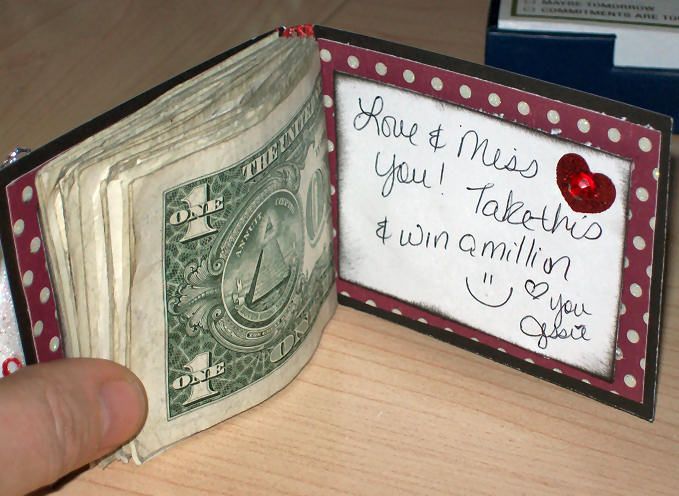 MAYBE TOMORROW
COMMITMENTS ARE TOO
THE UNITED
1
ONE
ANNUIT COEPTIS
1
ONE
ONE
Love & Miss
You! Take this
& win a million
you
Jessie